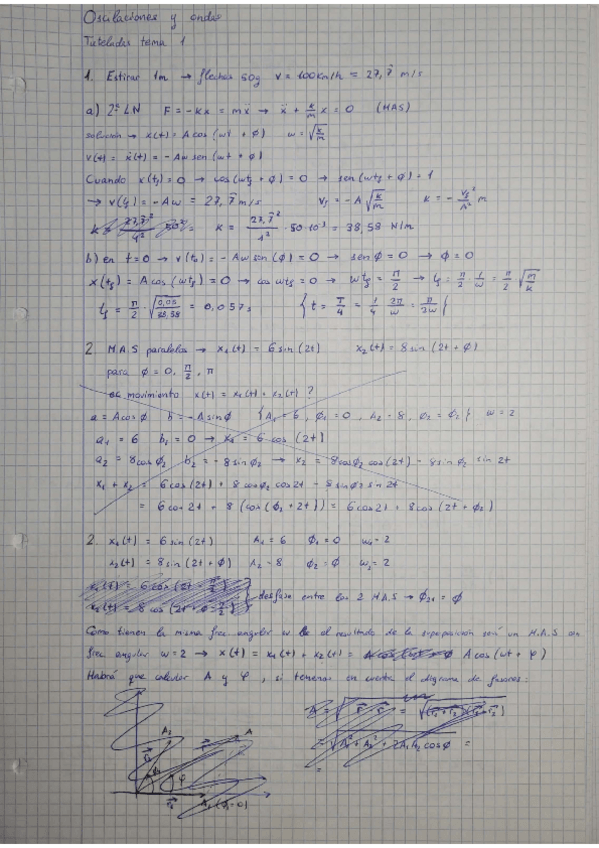 Oscilaciones y ondas
Tuteladas tema 1
1. Estirar 1m → flechas 50g v = 100km/h = 27,7̂ m/s
a) 2ª LN F = -Kx = mẍ → ẍ + k/m x = 0 (MAS)
solución → x(t) = A cos (wt + ϕ) ω = √(k/m)
v(t) = ẋ(t) = -Aw sen (wt + ϕ)
Cuando x(tf) = 0 → cos(wtf + ϕ) = 0 → sen(wtf + ϕ) = 1
→ v(tf) = -Aw = 27,7̂ m/s vf = -A √(k/m) K = - vf²/A² m
K = 27,7̂²/1² · 50·10³ = 38,58 N/m
b) en t = 0 → v(t0) = -Aw sen(ϕ) = 0 → sen ϕ = 0 → ϕ = 0
x(tf) = A cos (wtf) = 0 → cos wtf = 0 → wtf = π/2 → tf = π/2 · 1/w = π/2 √(m/k)
tf = π/2 · √(0,05/38,58) = 0,057s {t = T/4 = 1/4 2π/w = π/2w}
2. M.A.S paralelos → x1(t) = 6 sin (2t) x2(t) = 8 sin (2t + ϕ)
para ϕ = 0, π/2, π
movimiento x(t) = x1(t) + x2(t) ?
a = A cos ϕ b = -A sin ϕ {A1 = 6, ϕ1 = 0, A2 = 8, ϕ2 = ϕ2} w = 2
a1 = 6 b1 = 0 → x1 = 6 cos (2t)
a2 = 8 cos ϕ2 b2 = -8 sin ϕ2 → x2 = 8 cos ϕ2 cos (2t) - 8 sin ϕ2 sin 2t
x1 + x2 = 6 cos (2t) + 8 cos ϕ2 cos 2t - 8 sin ϕ2 sin 2t
= 6 cos 2t + 8 (cos (ϕ2 + 2t)) = 6 cos 2t + 8 cos (2t + ϕ2)
2. x1(t) = 6 sin (2t) A1 = 6 ϕ1 = 0 w1 = 2
x2(t) = 8 sin (2t + ϕ) A2 = 8 ϕ2 = ϕ w2 = 2
desfase entre los 2 M.A.S → ϕ21 = ϕ
Como tienen la misma frec angular w el resultado de la superposición será un M.A.S con
frec angular w = 2 → x(t) = x1(t) + x2(t) = A cos (wt + φ)
Habrá que calcular A y φ, si tenemos en cuenta el diagrama de fasores:
A = √((r1 + r2)(r1 + r2))
= √(A1² + A2² + 2A1A2 cos ϕ) =
=
A2 A
φ
A1 (ϕ1 = 0)